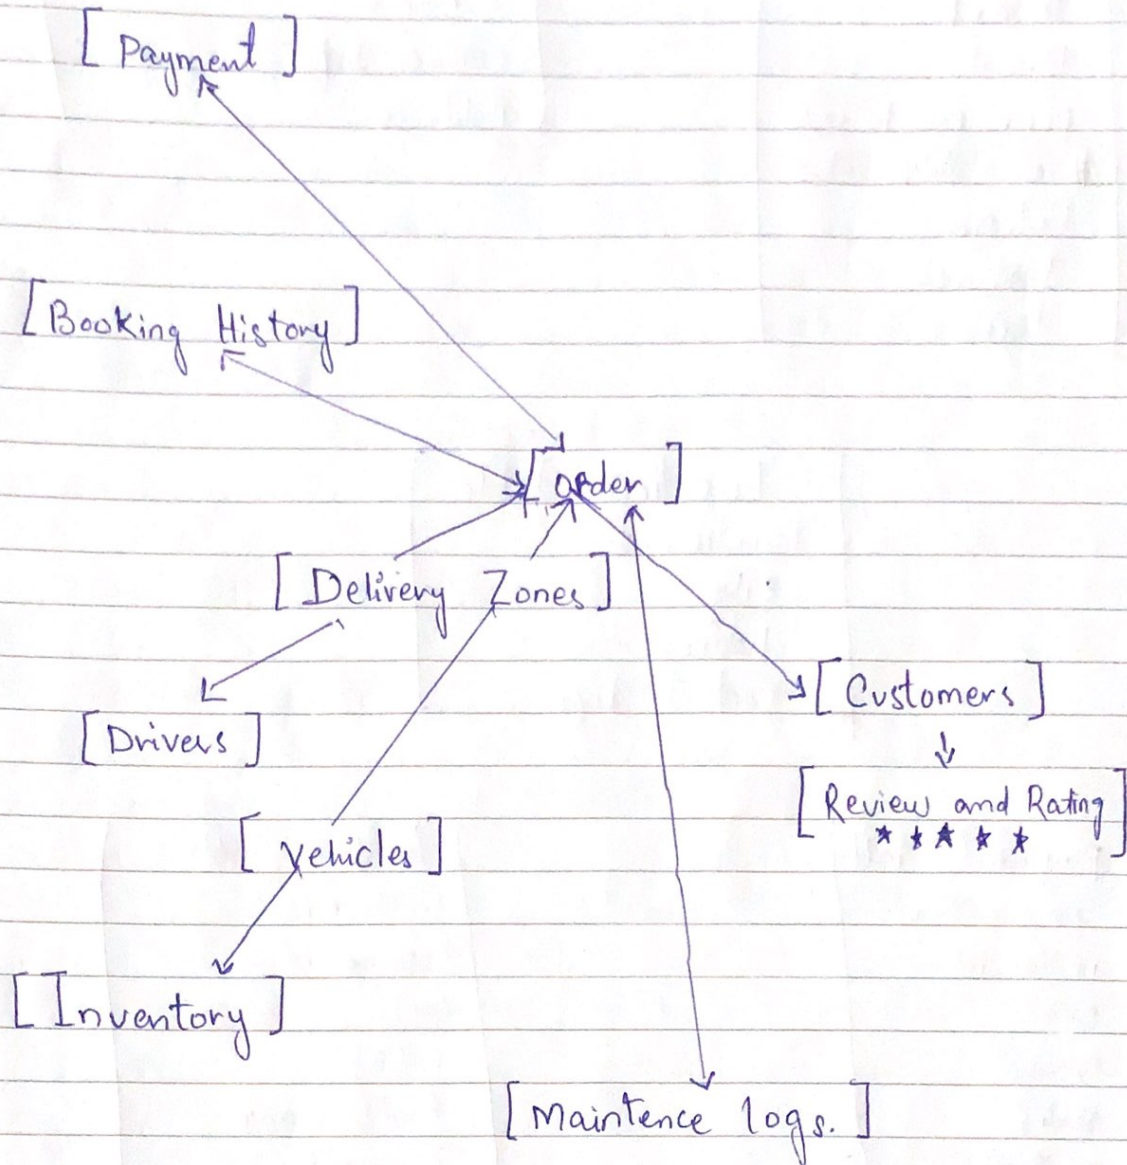 [ Payment ]
[ Booking History ]
[ order ]
[ Delivery Zones ]
[ Customers ]
[ Drivers ]
[ Review and Rating ]
★ ★ ★ ★ ★
[ Vehicles ]
[ Inventory ]
[ Maintence logs. ]